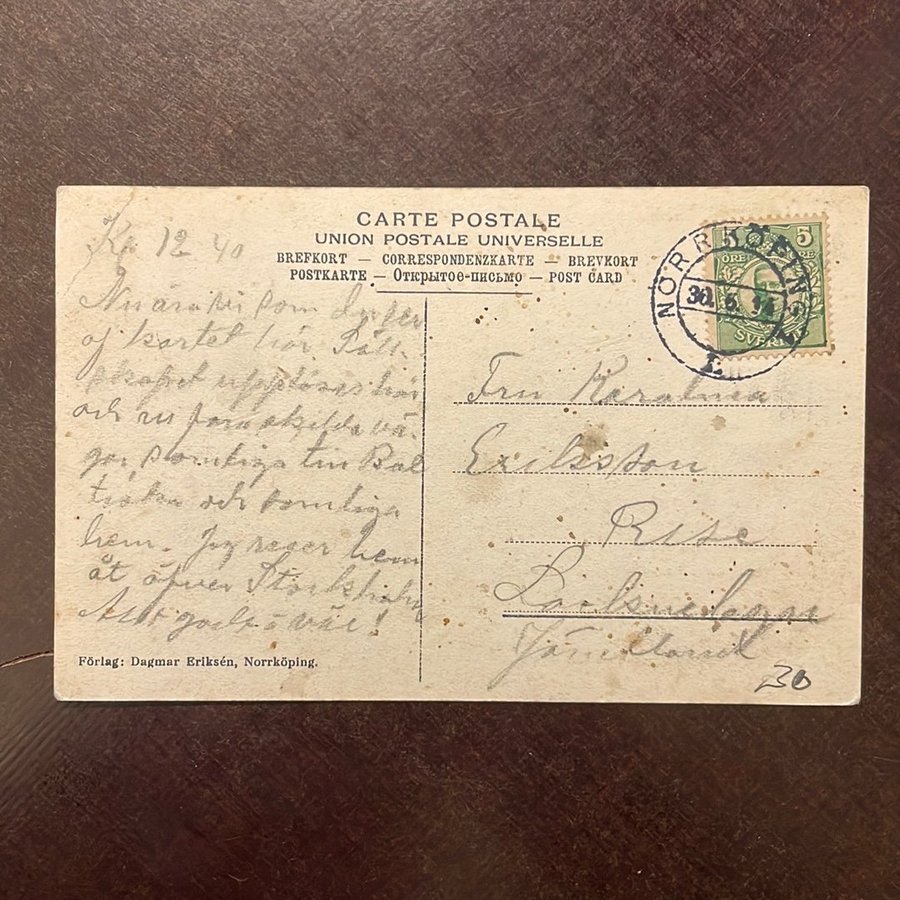 CARTE POSTALE
UNION POSTALE UNIVERSELLE
BREFKORT — CORRESPONDENZKARTE — BREVKORT
POSTKARTE — Открытое-письмо — POST CARD
5 ÖRE
SVERIGE
NORRKÖPING
30. 6. 14
Kl 12 40
Nu äro vi som
af kortet här Säll-
skapet upplöses här
och vi fara skilda vä-
gar somliga till Bal
tiska och somliga
hem. Jag reser hem
åt öfver Stockholm
Allt godt o väl!
Fru Karolina
Eriksson
Rise
Jämtland
30
Förlag: Dagmar Eriksén, Norrköping.